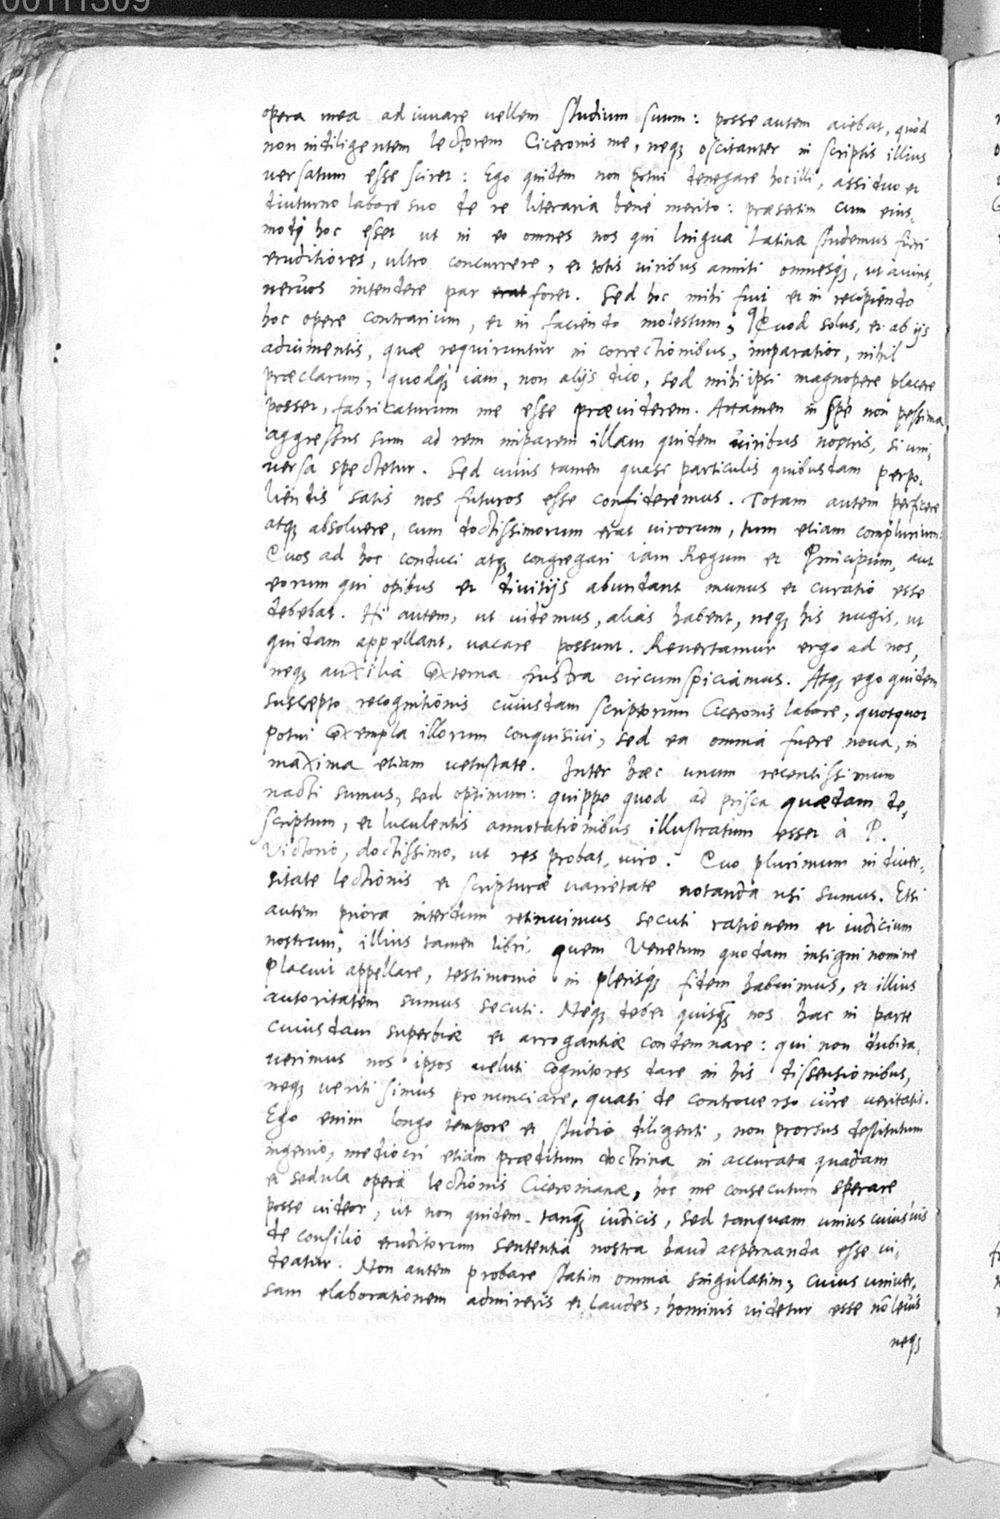 00111309
opera mea adiuuare uellem studium suum: posse autem aiebat, quòd
non indiligentem lectorem Ciceronis me, neqꝫ oscitanter in scriptis illius
uersatum esse sciret: Ego quidem non potui denegare hoc illi, assiduo et
diuturno labore suo de re literaria bene merito: præsertim cum eius-
modi hoc esset ut in eo omnes nos qui lingua Latina studemus fieri
eruditiores, ultro concurrere, et totis uiribus anniti omnesqꝫ, ut aiunt,
neruos intendere par erat foret. Sed hoc mihi fuit et in recipiendo
hoc opere contrarium, et in faciendo molestum, Quod solus, et ab ijs
adiumentis, quæ requiruntur in correctionibus, imparatior, nihil
præclarum, quodqꝫ iam, non alijs dico, sed mihi ipsi magnopere placere
posset, fabricaturum me esse præuiderem. Attamen in spe non pessima
aggressus sum ad rem imparem illam quidem uiribus nostris, si uni-
uersa spectetur. Sed cuius tamen quasi particulis quibusdam perpo-
liendis satis nos futuros esse confideremus. Totam autem perficere
atqꝫ absoluere, cum doctissimorum erat uirorum, tum etiam complurium:
Quos ad hoc conduci atqꝫ congregari iam Regum et Principum, aut
eorum qui opibus et diuitijs abundant munus et curatio esse
debebat. Hi autem, ut uidemus, alias habent, neqꝫ his nugis, ut
quidam appellant, uacare possunt. Reuertamur ergo ad nos,
neqꝫ auxilia externa frustra circumspiciamus. Atqꝫ ego quidem
suscepto recognitionis cuiusdam scriptorum Ciceronis labore, quotquot
potui exempla illorum conquisiui, sed ea omnia fuere noua, in
maxima etiam uetustate. Inter hæc unum recentissimum
nacti sumus, sed optimum: quippe quod ad prisca quædam de-
scriptum, et luculentis annotationibus illustratum esset à P.
Victorio, doctissimo, ut res probat, uiro. Quo plurimum in diuer-
sitate lectionis et scripturæ uarietate notanda usi sumus. Etsi
autem priora interdum retinuimus secuti rationem et iudicium
nostrum, illius tamen libri, quem Venetum quodam insigni nomine
placuit appellare, testimonio in plerisqꝫ fidem habuimus, et illius
autoritatem sumus secuti. Neqꝫ debet quisqꝫ nos hac in parte
cuiusdam superbiæ et arrogantiæ condemnare: qui non dubita-
uerimus nos ipsos ueluti cognitores dare in his dissensionibus,
neqꝫ ueriti simus pronunciare, quasi de controuerso iure ueritatis.
Ego enim longo tempore et studio diligenti, non prorsus destitutum
ingenio, mediocri etiam præditum doctrina in accurata quadam
et sedula opera lectionis Ciceronianæ, hoc me consecutum sperare
posse uideor, ut non quidem tanqꝫ iudicis, sed tanquam unius cuiusuis
de consilio eruditorum sententia nostra haud aspernanda esse ui-
deatur. Non autem probare statim omnia singulatim, cuius uniuer-
sam elaborationem admireris et laudes, hominis uidetur esse nō leuis
neqꝫ